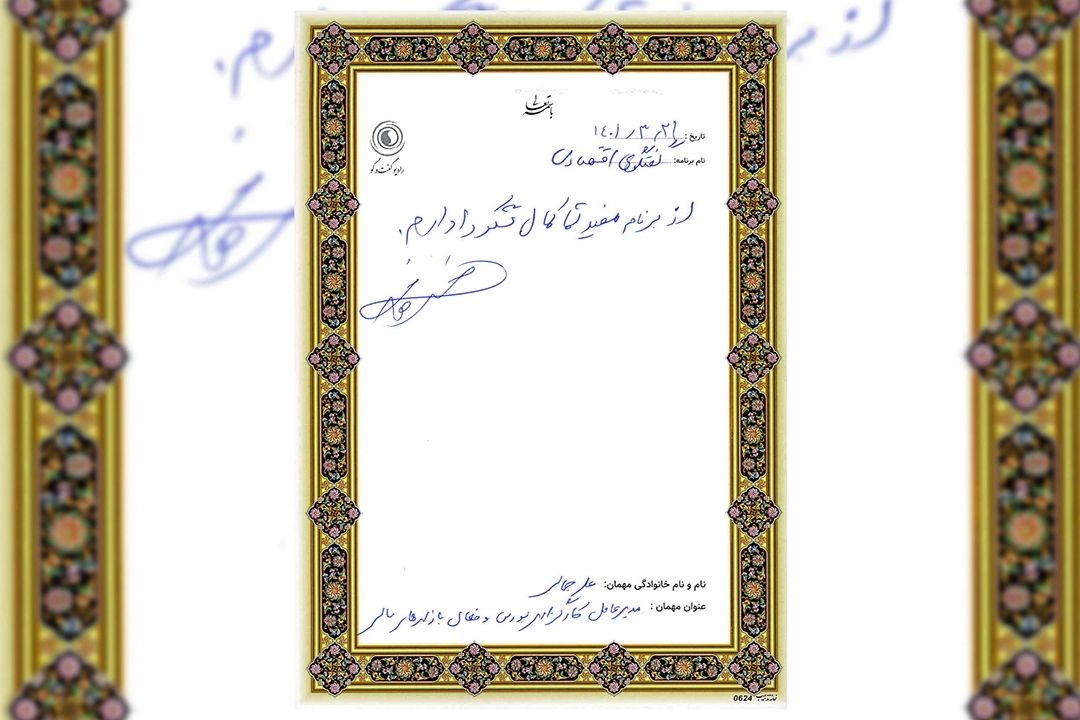 باسمه تعالی
رادیو گفت و گو
تاریخ: ۱۴۰۱/۳/۲۱
نام برنامه: گفتگوی اقتصادی
از برنامه مفید شما کمال تشکر را دارم.
نام و نام خانوادگی مهمان: علی جمالی
عنوان مهمان: مدیرعامل کارگزاری بورس و فعال بازارهای مالی
0624